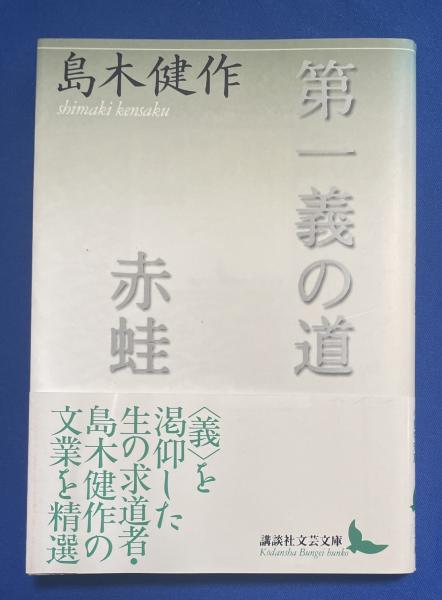 島木健作
shimaki kensaku
第一義の道
赤蛙
〈義〉を
渇仰した
生の求道者・
島木健作の
文業を精選
講談社文芸文庫
Kodansha Bungei bunko